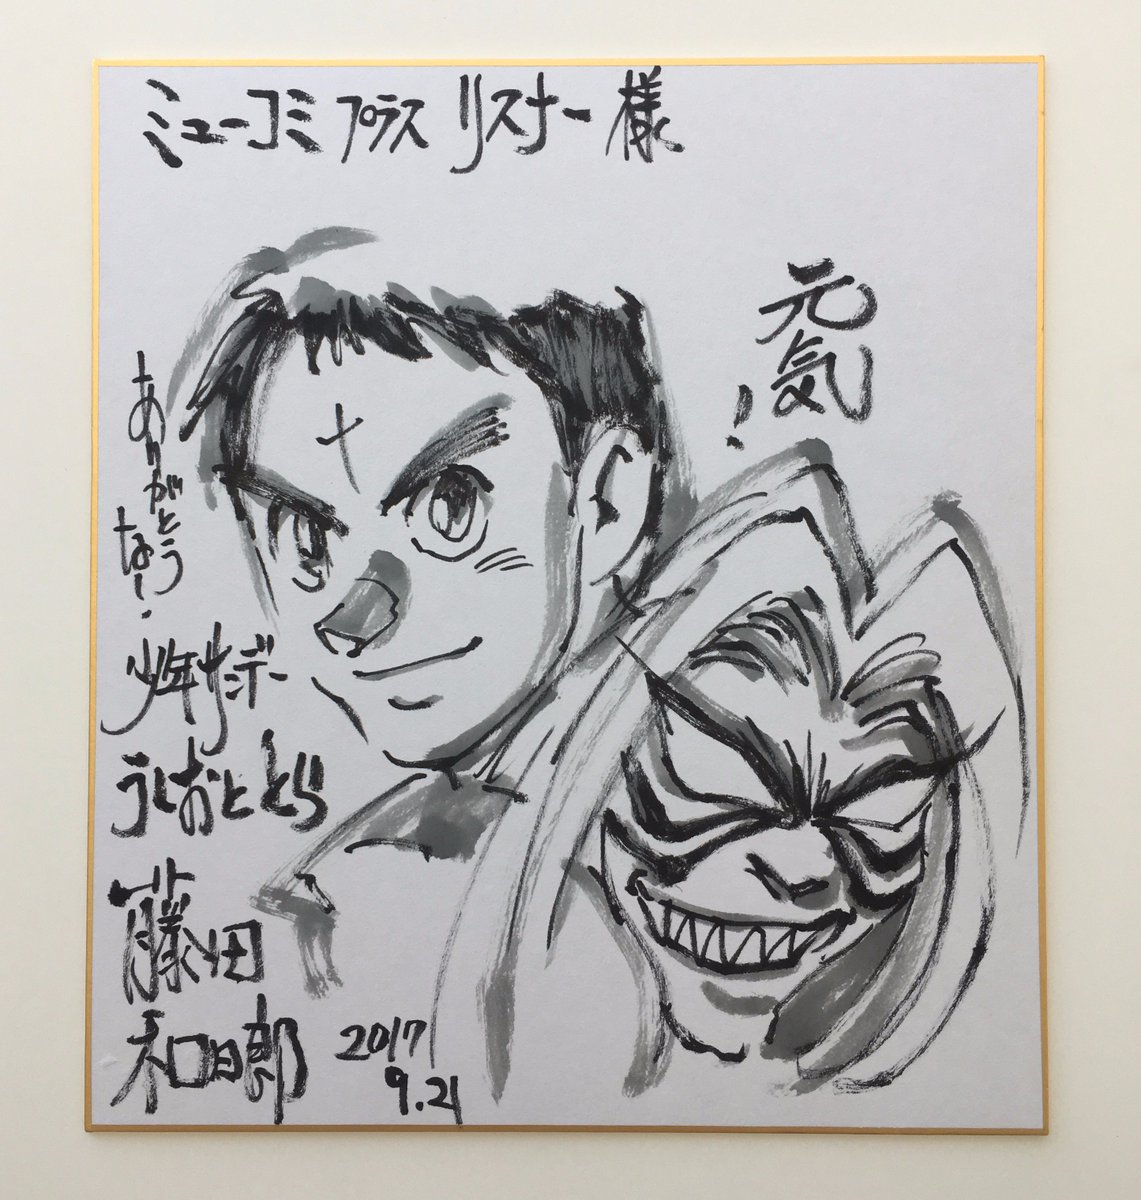 ミューコミプラス リスナー様
元気!
ありがとう
なー!
少年サンデー
うしおととら
藤田
和日郎
2017
9.21